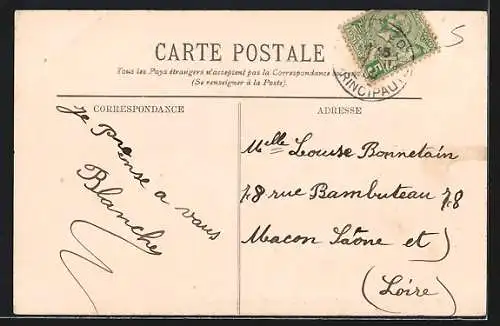 CARTE POSTALE
Tous les Pays étrangers n'acceptent pas la Correspondance
(Se renseigner à la Poste).
CORRESPONDANCE
ADRESSE
je pense a vous
Blanche
Melle Louise Bonnetain
78 rue Rambuteau 78
Macon Sâone et
(Loire)
PRINCIPAUTÉ
5